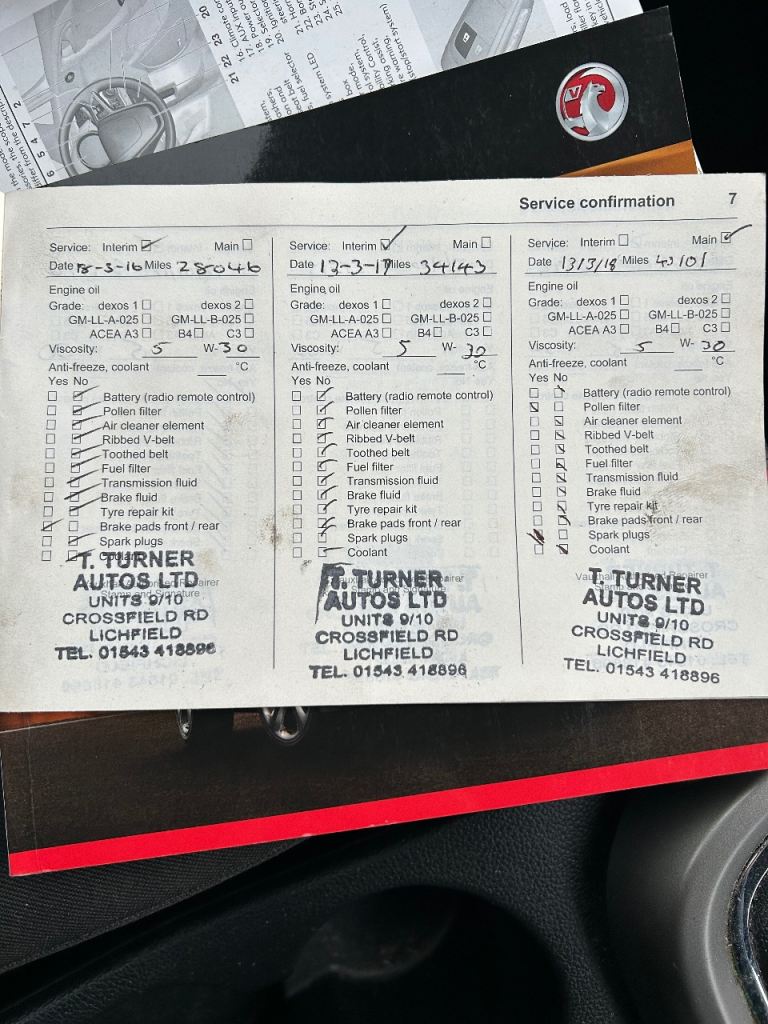 Service confirmation 7
Service: Interim Main
Date 18-3-16 Miles 28046
Engine oil
Grade: dexos 1 dexos 2
GM-LL-A-025 GM-LL-B-025
ACEA A3 B4 C3
Viscosity: 5 W-30
Anti-freeze, coolant °C
Yes No
Battery (radio remote control)
Pollen filter
Air cleaner element
Ribbed V-belt
Toothed belt
Fuel filter
Transmission fluid
Brake fluid
Tyre repair kit
Brake pads front / rear
Spark plugs
Coolant
T. TURNER
AUTOS LTD
UNITS 9/10
CROSSFIELD RD
LICHFIELD
TEL. 01543 418896
Service: Interim Main
Date 13-3-17 Miles 34143
Engine oil
Grade: dexos 1 dexos 2
GM-LL-A-025 GM-LL-B-025
ACEA A3 B4 C3
Viscosity: 5 W-30
Anti-freeze, coolant °C
Yes No
Battery (radio remote control)
Pollen filter
Air cleaner element
Ribbed V-belt
Toothed belt
Fuel filter
Transmission fluid
Brake fluid
Tyre repair kit
Brake pads front / rear
Spark plugs
Coolant
T. TURNER
AUTOS LTD
UNITS 9/10
CROSSFIELD RD
LICHFIELD
TEL. 01543 418896
Service: Interim Main
Date 13/3/18 Miles 43101
Engine oil
Grade: dexos 1 dexos 2
GM-LL-A-025 GM-LL-B-025
ACEA A3 B4 C3
Viscosity: 5 W-30
Anti-freeze, coolant °C
Yes No
Battery (radio remote control)
Pollen filter
Air cleaner element
Ribbed V-belt
Toothed belt
Fuel filter
Transmission fluid
Brake fluid
Tyre repair kit
Brake pads front / rear
Spark plugs
Coolant
T. TURNER
AUTOS LTD
UNITS 9/10
CROSSFIELD RD
LICHFIELD
TEL. 01543 418896